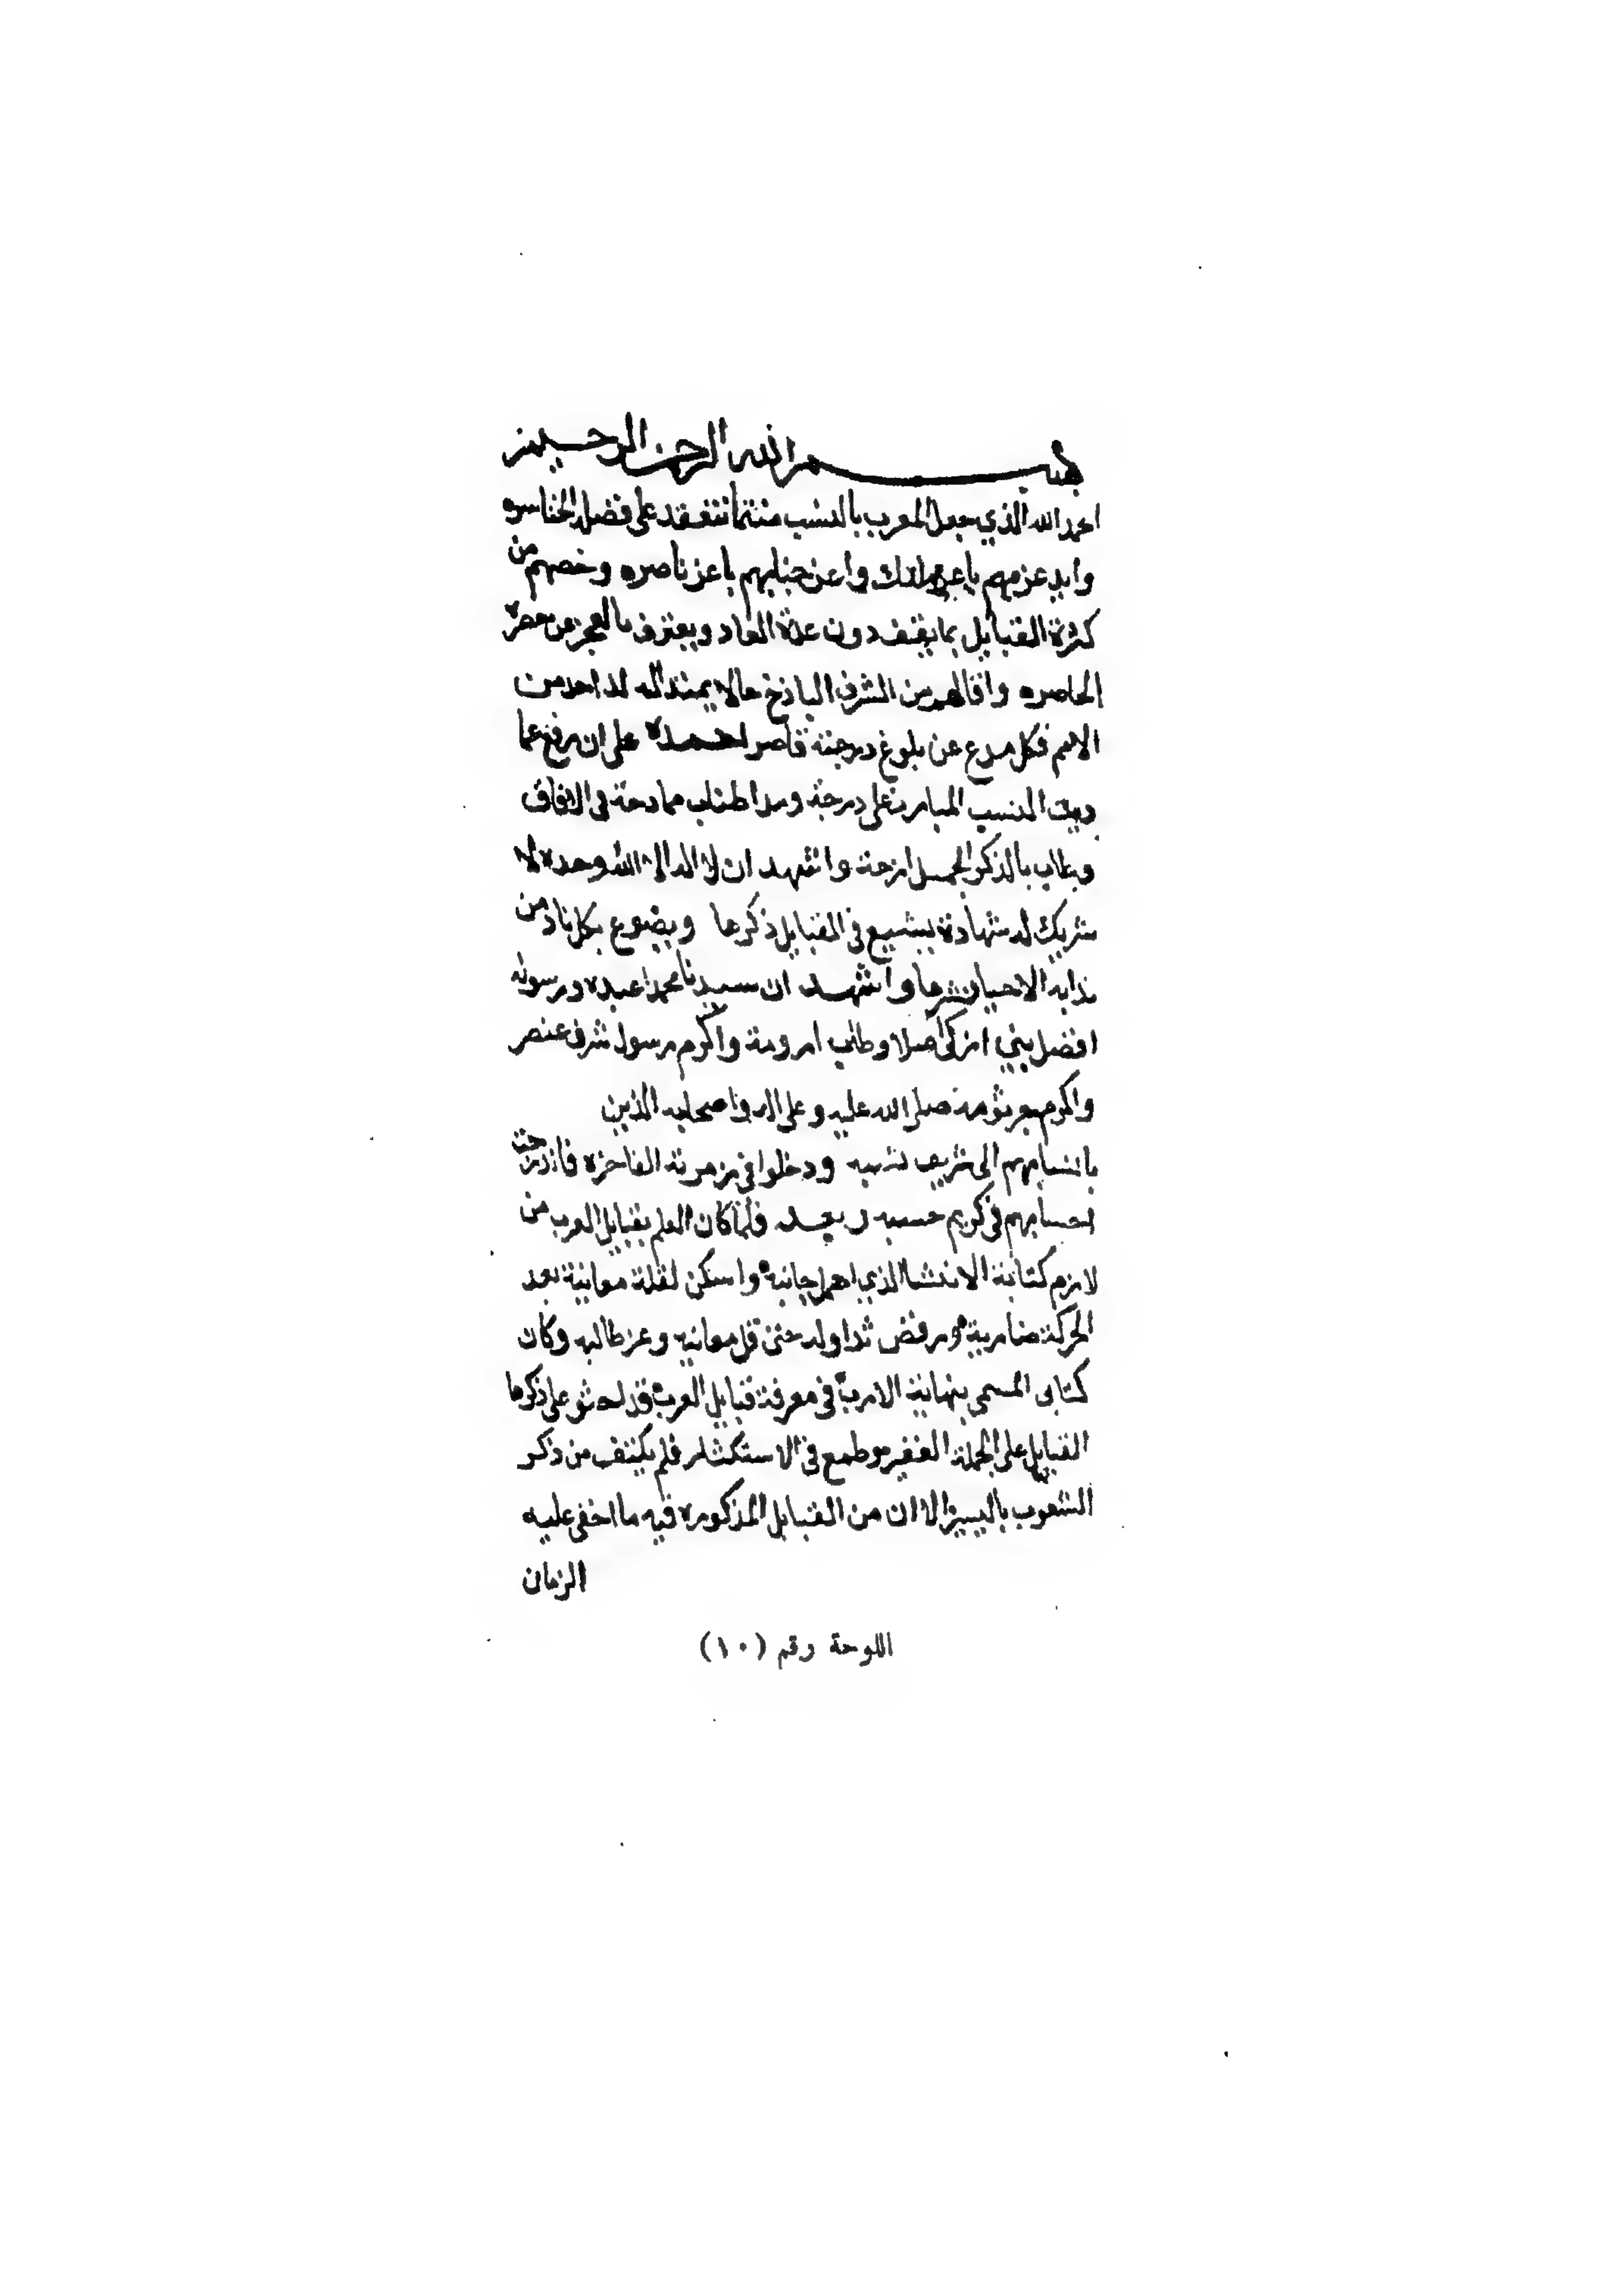 بسم الله الرحمن الرحيم
الحمد لله الذي جعل للعرب بالنسب منتما تنعقد على فضله الخناصره
وايد عزمهم باعز ملك واعز جنابهم باعز ناصره وخصهم من
كثرة القبايل بما يقف دون عده العاد ويعترف بالعجز عن حصره
الحاصره وافالهم من الشرف الباذخ حالا يمتد اليه لد احد من
الامم فكل مدع عن بلوغ درجته قاصر احمده على ان رفع عما
ديت النسب المبارك على درجة ومد اطناب ممادحة في الافاق
وطاب بالذكر الجميل ارجة واشهد ان لا اله الا الله وحده لا
شريك له شهادة يشيع في القبايل ذكرها ويضوع بكل ناد من
نداية الاحيا نشرها واشهد ان سيدنا محمدا عبده ورسوله
افضل بني ازكى اصلا وطاب ارومة واكرم رسول شرف عنصر
واكرم جرثومة صلى الله عليه وعلى اله واصحابه الذين
بانسابهم الى شريف نسبه ودخلوا في زمرته الفاخرة فاندرجت
احسابهم في كريم حسبه وبعد فلما كان العلم بقبايل العرب من
لازم كتابة الانشا الذي اهمل جانبه واسكن لقلة معانية بعد
الحركة ضاربة ورفض تداوله حتى قل معانيه وعز طالبه وكان
كتابى المسمى بنهاية الارب في معرفة قبايل العرب قد على ذكرها
القبايل على الجملة الغفير وطمع في الاستكثار فلم يكتف من ذكر
الشعوب باليسير الا ان من القبايل المذكوره فيه ما اخفى عليه
الزمان
اللوحة رقم (١٠)